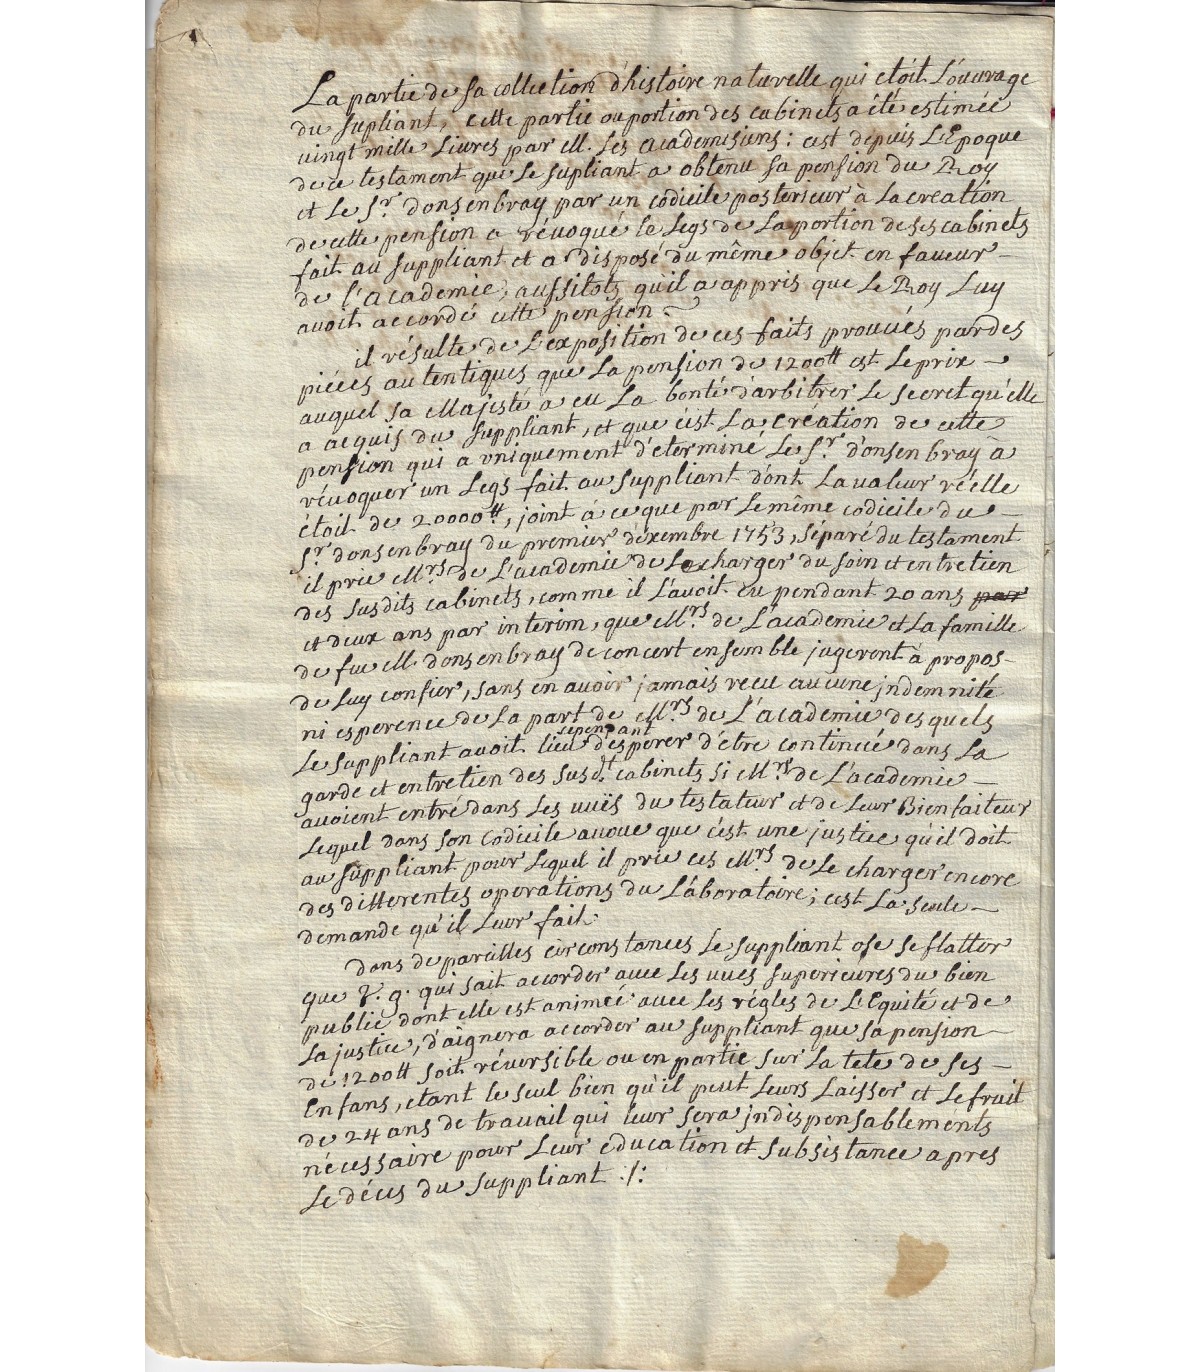 La partie de sa collection d'histoire naturelle qui etoit L'ouvrage
du supliant, cette partie ou portion des cabinets a été estimée
vingt mille Livres par M. Les academisiens: cest depuis L'Epoque
de ce testament que Le supliant a obtenu sa pension du Roy
et Le Sr. donsenbray par un codicile posterieur à La creation
de cette pension a révoqué le Legs de La portion de ses cabinets
fait au suppliant et a disposé du même objet en faveur –
de l'academie, aussitots qu'il a appris que Le Roy Luy
avoit accordé cette pension ~
il résulte de L'exposition de ces faits prouvés par des
piéces autentiques que La pension de 1200tt est Le prix –
auquel sa Majesté a eu La bonté d'arbitrer Le secret qu'elle
a acquis du suppliant, et que c'est La création de cette
pension qui a vniquement d'eterminé Le Sr. d'onsenbray à
révoquer un Legs fait au suppliant d'ont La valeur réelle
étoit de 20000tt, joint à ce que par Le même codicile du –
Sr. donsenbray du premier déxembre 1753, séparé du testament
il prie Mrs. de L'academie de Le charger du soin et entretien
des susdits cabinets, comme il L'avoit eu pendant 20 ans par
et deux ans par interim, que Mrs. de L'academie et La famille
de fue M. donsenbray de concert ensemble jugerent à propos –
de Luy confier, sans en avoir jamais recu aucune jndemnité
ni esperence de La part de Mrs. de L'academie desquels
sepenpant
Le suppliant avoit lieu d'esperer d'être continué dans La
garde et entretien des susdt. cabinets si Mrs. de L'academie –
avoient entré dans Les vuës du testateur et de Leur Bienfaiteur
Lequel dans son codicile avoue que c'est une justice qu'il doit
au suppliant pour Lequel il prie ces Mrs. de Le charger encore
des differentes operations du Laboratoire; cest La seule –
demande qu'il Leur fait.
dans de pareilles circonstances Le suppliant ose se flatter
que V. g. qui sait accorder avec Les vues superieures du bien
public dont elle est animeé avec Les régles de L'Equité et de
La justice, d'aignera accorder au suppliant que sa pension –
de 1200tt soit réversible ou en partie sur La tete de ses –
Enfans, etant Le seul bien qu'il peut Leurs Laisser et Le fruit
de 24 ans de travail qui Leur sera jndispensablements
nécessaire pour Leur education et subsistance apres
Le déces du suppliant :/: